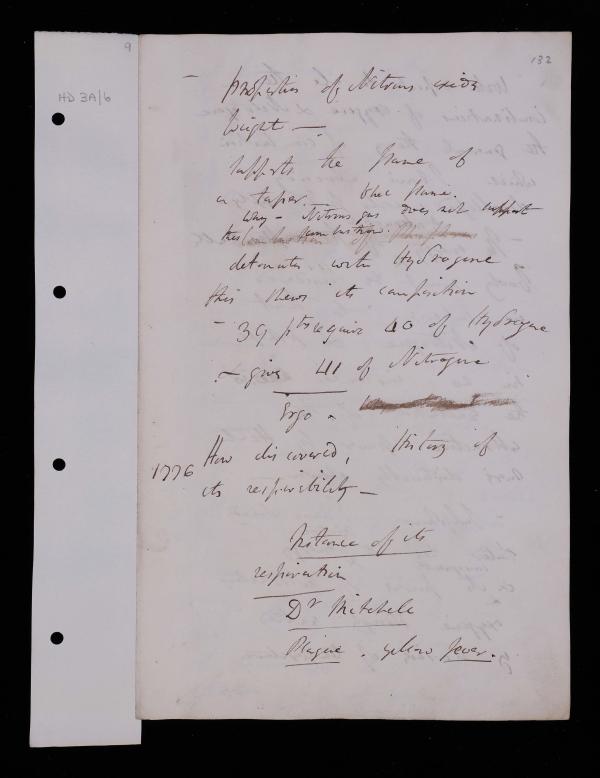 9
132
HD 3A/6
– Properties of Nitrous oxide
Weight —
Supports the flame of
a taper. – blue flame.
Why – Nitrous gas does not support
this combustion.
Combustion of Phosphorus
detonates with Hydrogene
this shews its composition
– 39 pts require 40 of Hydrogene
– give 41 of Nitrogene
Ergo –
1776 How discovered, History of
its respirability –
Instance of its
respiration
Dr Mitchele
Plague . yellow fever.